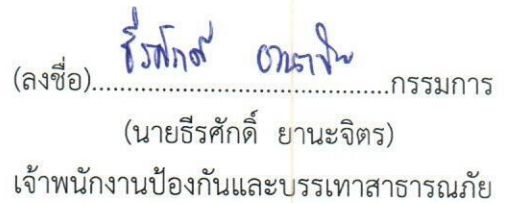 ธีรศักดิ์ ยานะจิตร
(ลงชื่อ)........................................กรรมการ
(นายธีรศักดิ์ ยานะจิตร)
เจ้าพนักงานป้องกันและบรรเทาสาธารณภัย